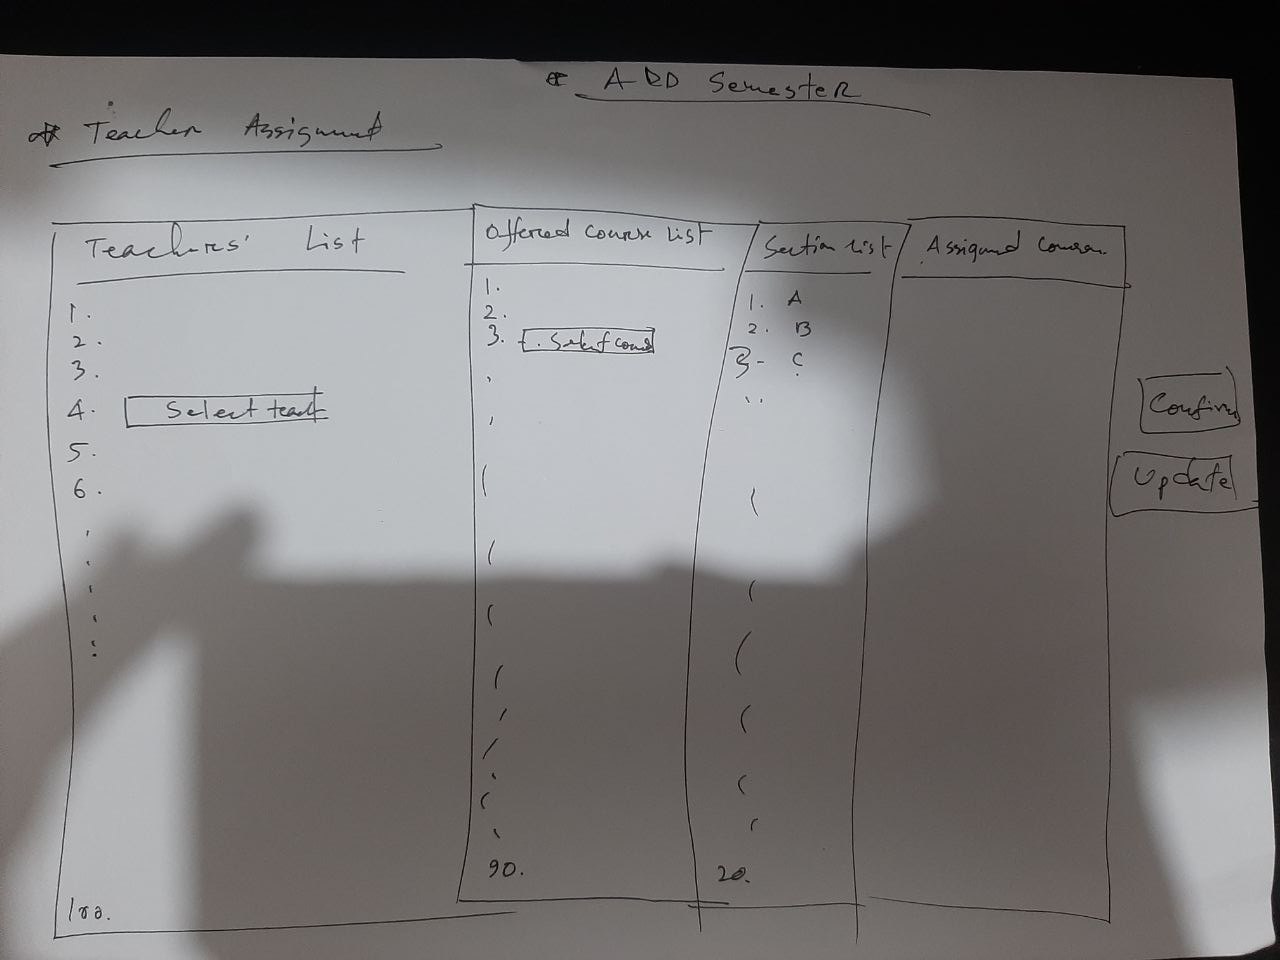 * ADD Semester
* Teacher Assignment
Teachers' List
1.
2.
3.
4. Select teach
5.
6.
100.
Offered course List
1.
2.
3. Select cours
90.
Section List
1. A
2. B
3- C
20.
Assigned courses
Confirm
Update